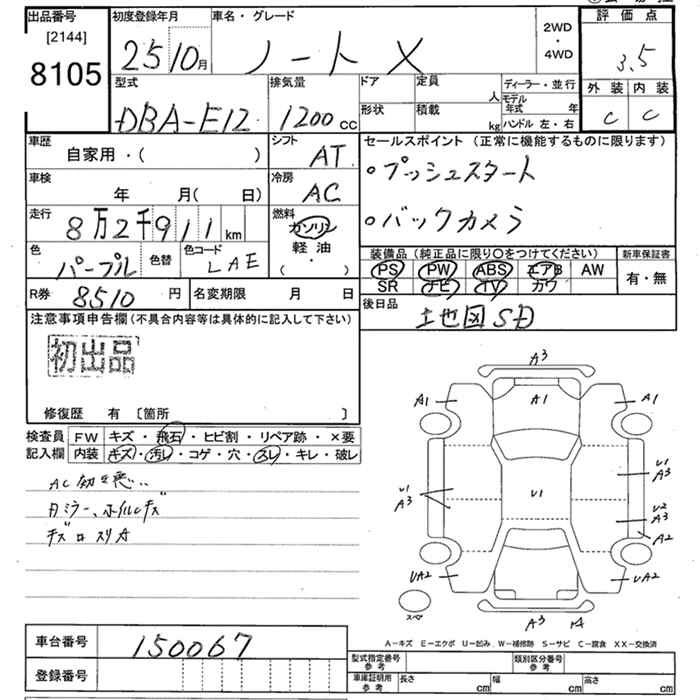 出品番号 初度登録年月 車名・グレード 評価点
[2144] 2510月 ノート X 2WD・4WD 3.5
8105
型式 排気量 ドア 定員 人 ディーラー・並行 外装 内装
DBA-E12 1200cc 形状 積載 kg モデル年式 年 ハンドル 左・右 C C
車歴 シフト セールスポイント（正常に機能するものに限ります）
自家用・( ) AT
車検 冷房 ○プッシュスタート
年 月(日) AC
走行 燃料 ○バックカメラ
8万2千911km ガソリン
軽油
・( )
色 色替 色コード
パープル LAE
装備品（純正品に限り○をつけてください） 新車保証書
PS PW ABS エアB AW 有・無
SR ナビ TV カワ
R券 8510円 名変期限 月 日
後日品 土地図SD
注意事項申告欄（不具合内容等は具体的に記入して下さい）
初出品
修復歴 有 〔箇所 〕
検査員 FW キズ・飛石・ヒビ割・リペア跡・×要
記入欄 内装 キズ・汚レ・コゲ・穴・スレ・キレ・破レ
A3
A1 A1 A1
U1 A3
U1 A3 U1
U2 A3
A2
UA2 UA2
スペア A3
A－キズ E－エクボ U－凹み W－補修跡 S－サビ C－腐食 XX－交換済
車台番号 150067
登録番号
型式指定番号 参考 類別区分番号 参考
車庫証明用 参考 長さ cm 幅 cm 高さ cm